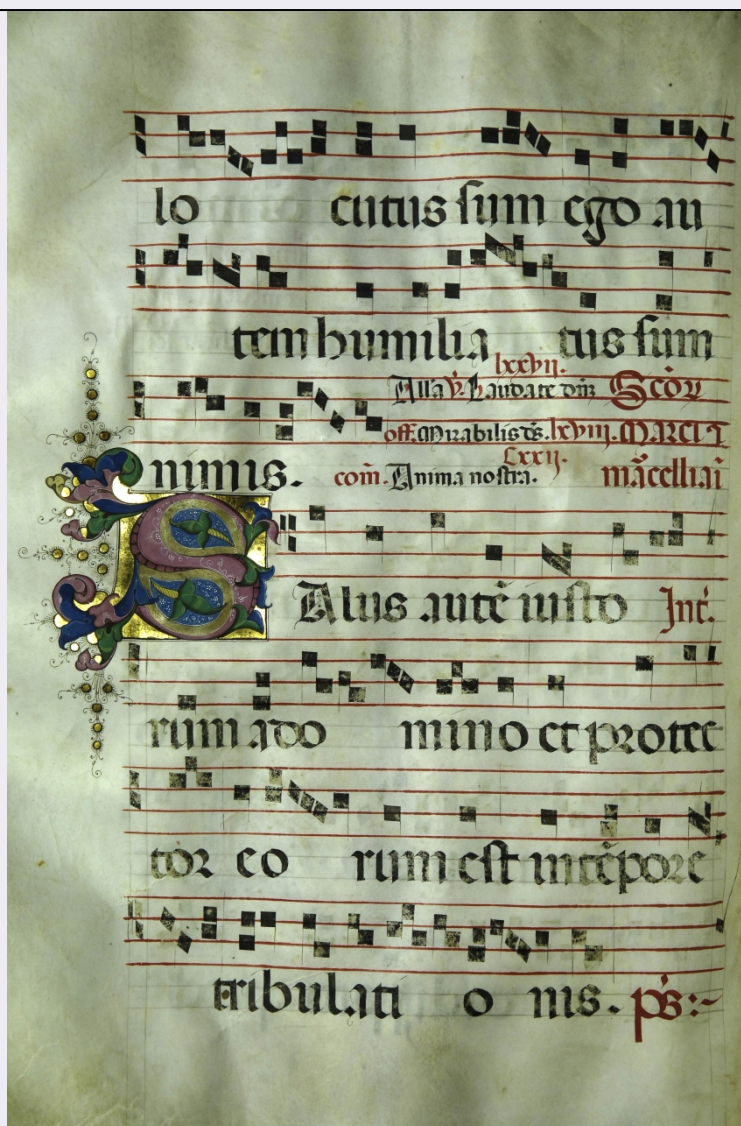 lo cutus sum ego au
tem humilia tus sum
lxxvij.
Alla. v̇. Laudate dn̄ꝫ Sc̄oꝝ
off. Mirabilis ds̄. lxviii. MARCI ⁊
nimis. com̄. Anima nostra. Lxxij. mācelliai
SAlus autē iusto Int̄.
rum ado mino et protec
tor eo rum est in tēpore
tribulati o nis. ps̄:~